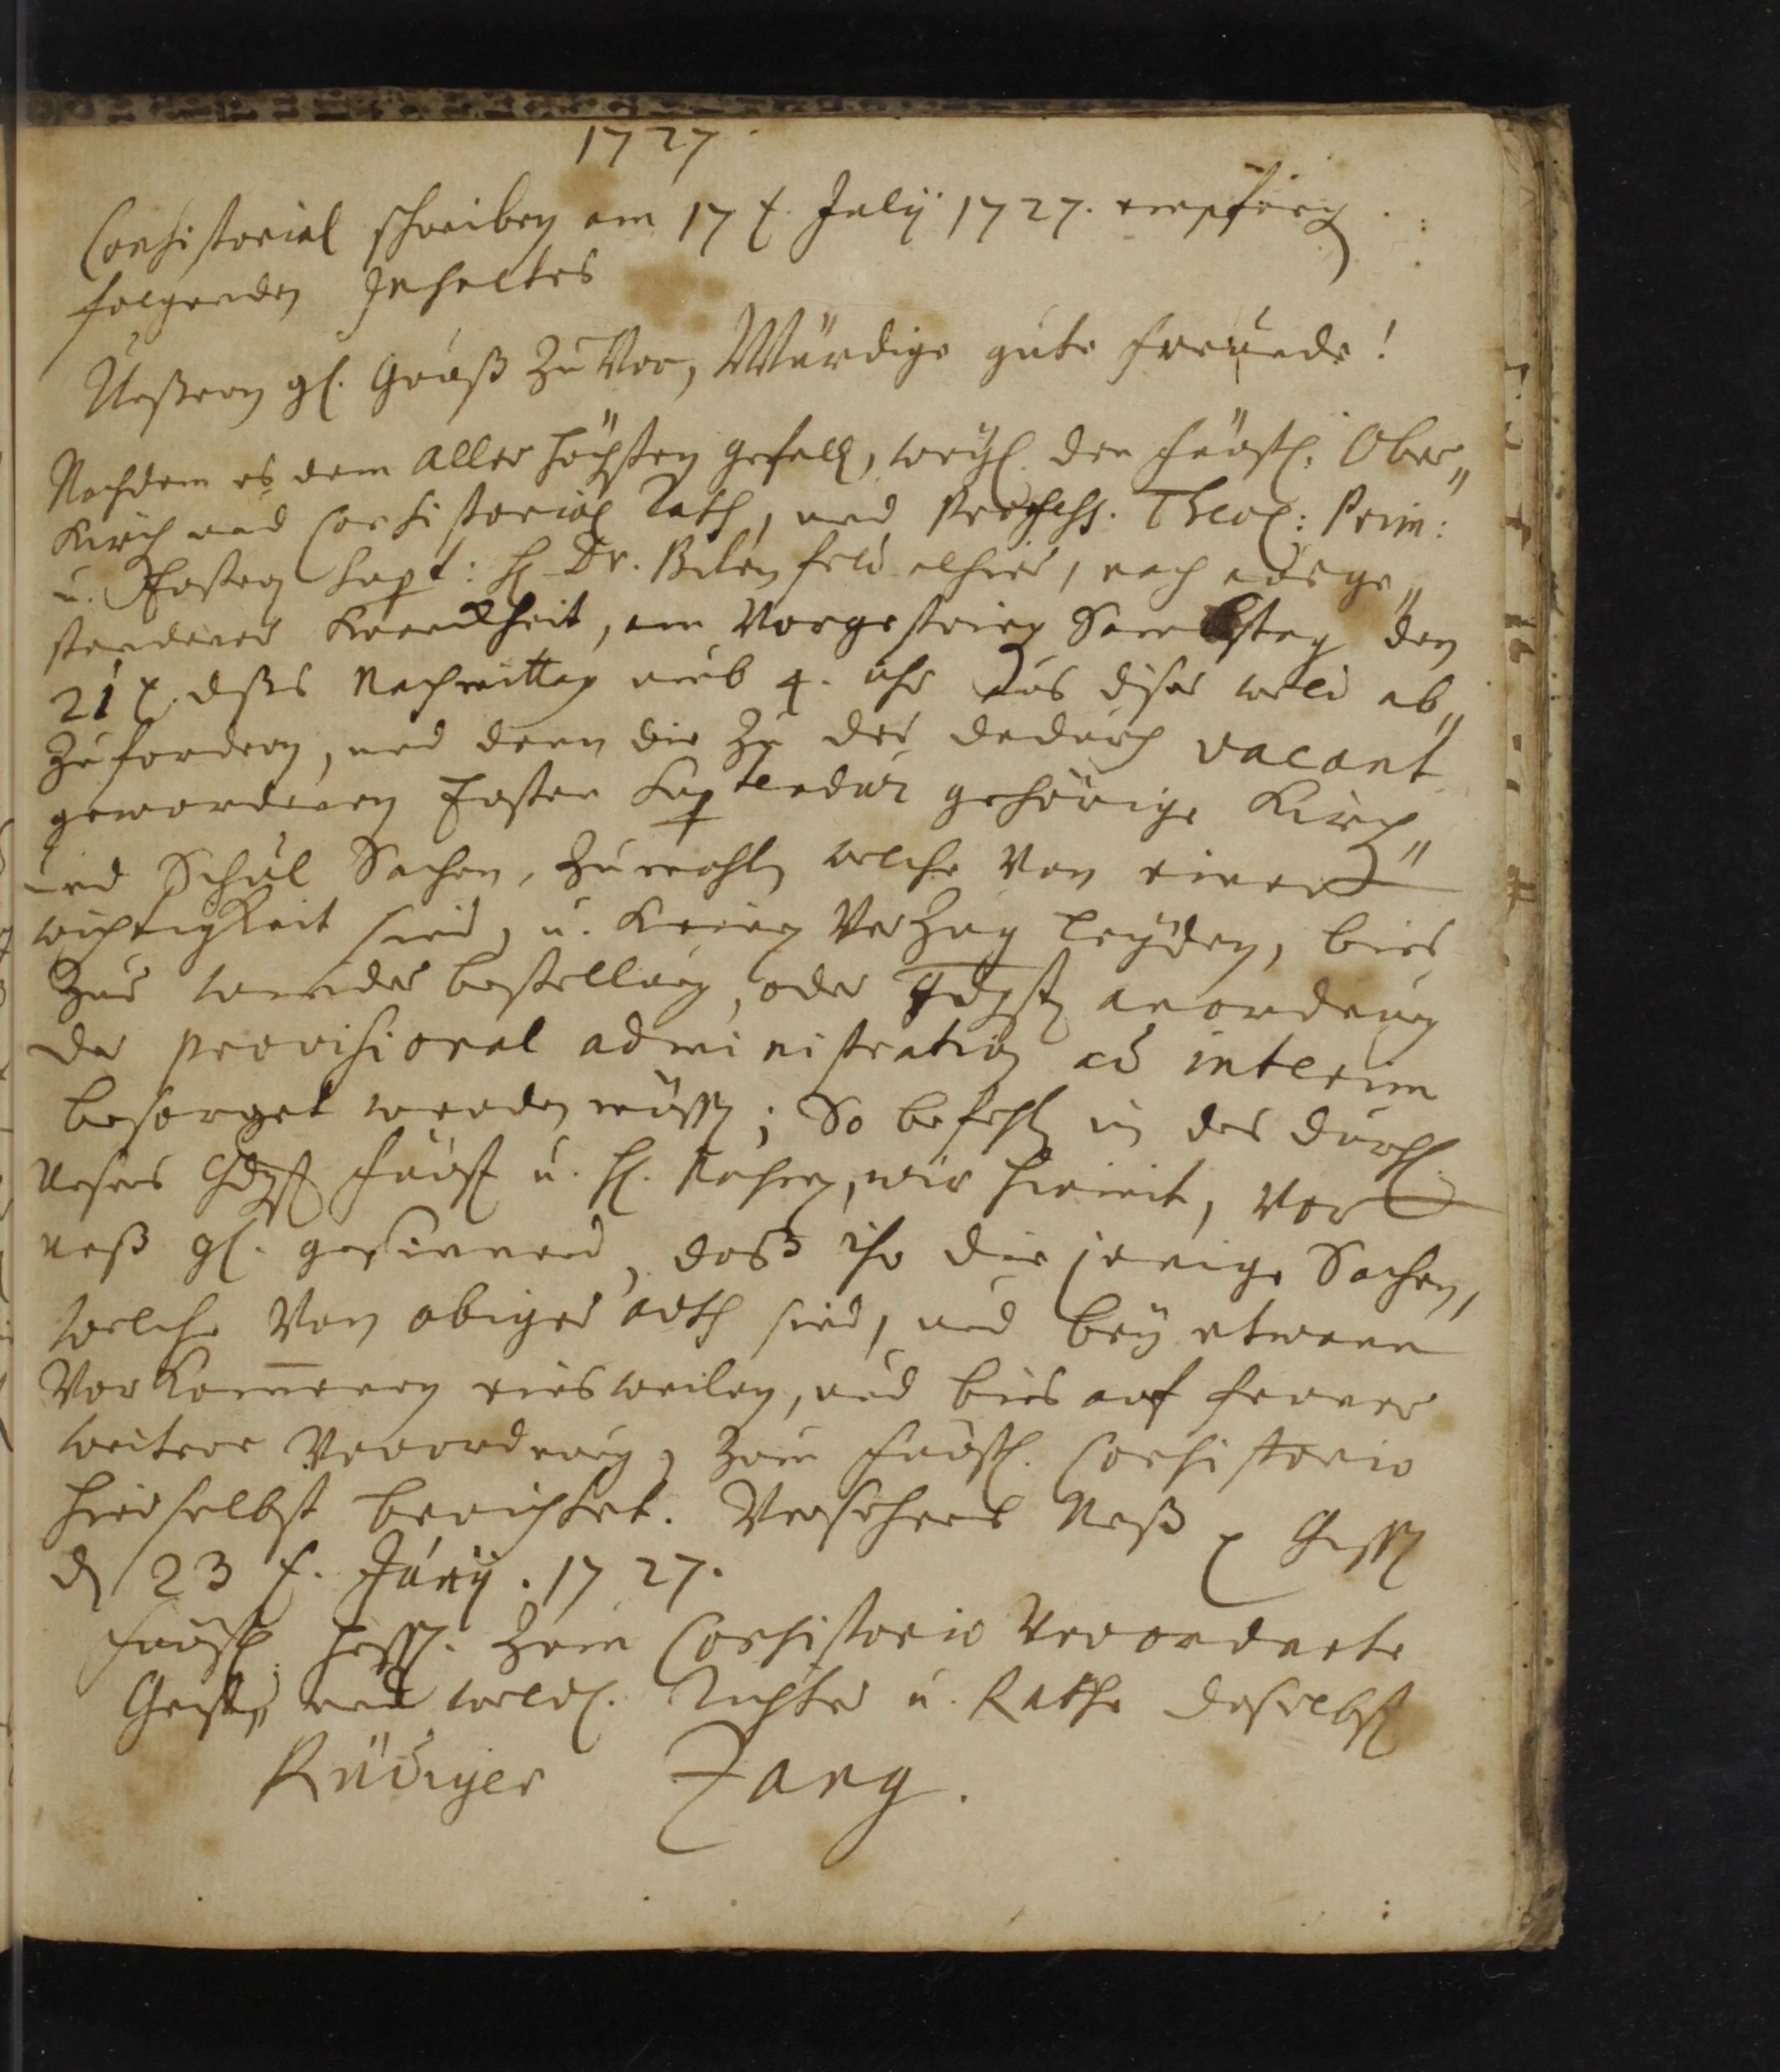 1727
Consistorial schreiben am 17 t. Julij 1727. empfang
folgenden Inhaltes
Unßern gl. Gruß zu Vor, Würdige gute freunde!
Nachdem es dem Aller höchsten gefall, weyl. den Fürstl. Ober„
Kirch und Consistorial Rath, und Profess. Theol: Prim:
u. Ersten Supt: H Dr. Bilenfeld alhier, nach ausge„
standener Kranckheit, am Vorgestrigen Sambstag den
21 t. dßes Nachmittag umb 4. uhr aus diser weld ab„
zufordern, und dann die zu der dadurch vacant
gewordenen Ersten Suptendur gehörige Kirch„
und Schul Sachen, zumahln welche Von einer
wichtigkeit sind, u. Keinen Verzug leyden, bies
zur wieder bestellung, oder gdgst anordnung
der provisional administration ad interim
besorget werden müssen; So befehln in des durchl.
unsers Gdgst Fürst u. H. Nahmen, wir hiermit, Vor
unß gl. gesinnend, daß ihr die jenige Sachen,
welche Von obiger arth sind, und bey etwann
Vorkommenen einsweilen, und bies auf ferner
weitere Verordnung, zum Fürstl. Consistorio
hierselbst berichtet. Versehens Unß p Giessen
d 23 t. Junij. 1727.
Fürstl. Hess. zum Consistorio Verordnete
Geistl. und weldl. Richter u. Rathe daselbst
Rüdiger Zang.